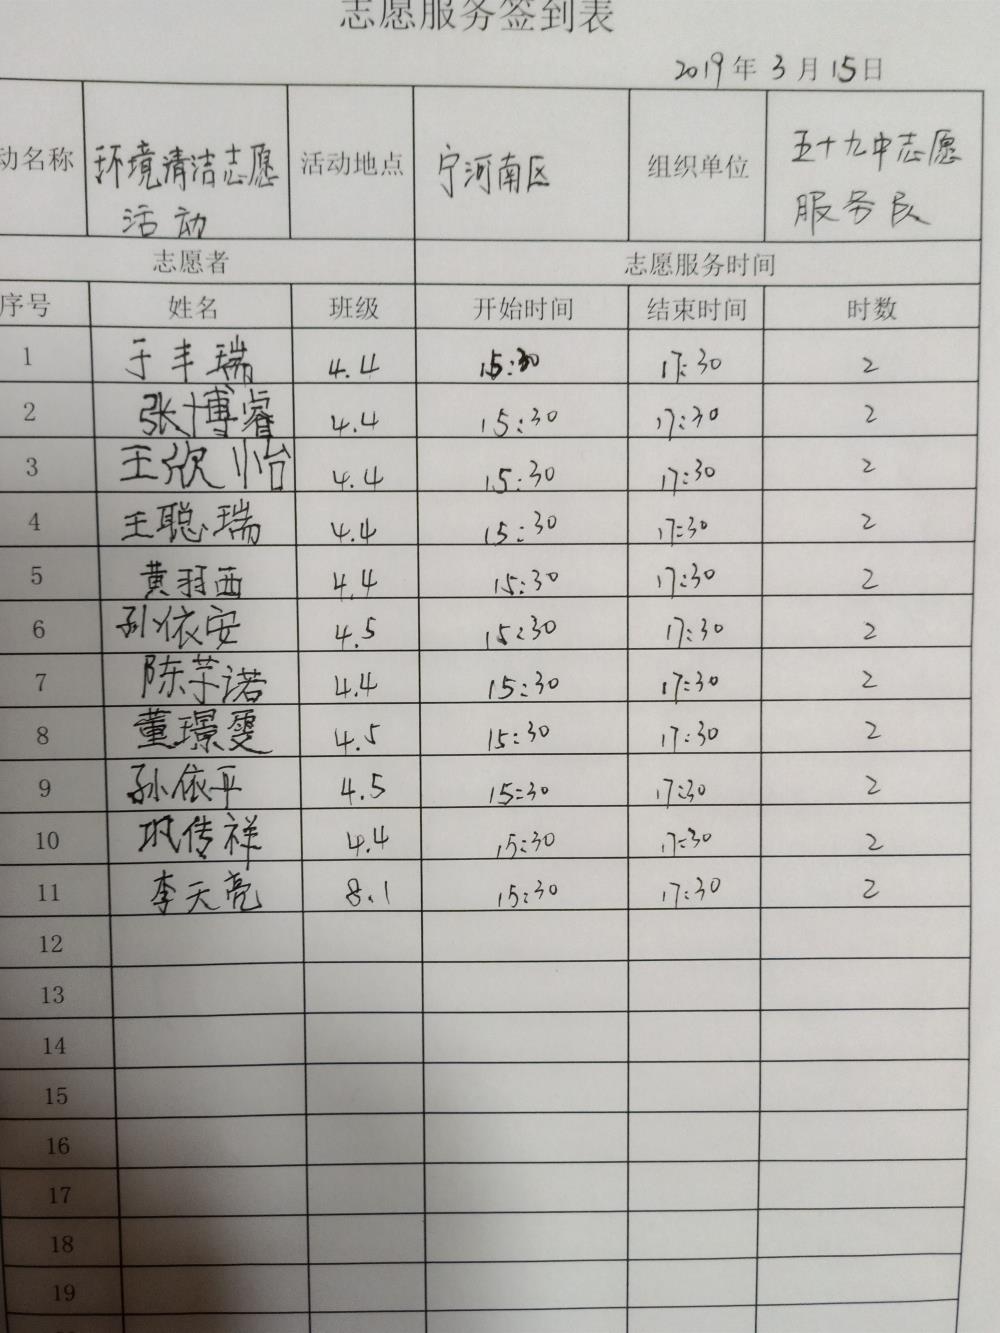 志愿服务签到表
2019年3月15日
动名称 环境清洁志愿 活动地点 宁河南区 组织单位 五十九中志愿
活动 服务队
志愿者 志愿服务时间
序号 姓名 班级 开始时间 结束时间 时数
1 于丰瑞 4.4 15:30 17:30 2
2 张博睿 4.4 15:30 17:30 2
3 王欣怡 4.4 15:30 17:30 2
4 王聪瑞 4.4 15:30 17:30 2
5 黄羽西 4.4 15:30 17:30 2
6 孙依安 4.5 15:30 17:30 2
7 陈芓诺 4.4 15:30 17:30 2
8 董璟雯 4.5 15:30 17:30 2
9 孙依平 4.5 15:30 17:30 2
10 传祥 4.4 15:30 17:30 2
11 李天亮 8.1 15:30 17:30 2
12
13
14
15
16
17
18
19